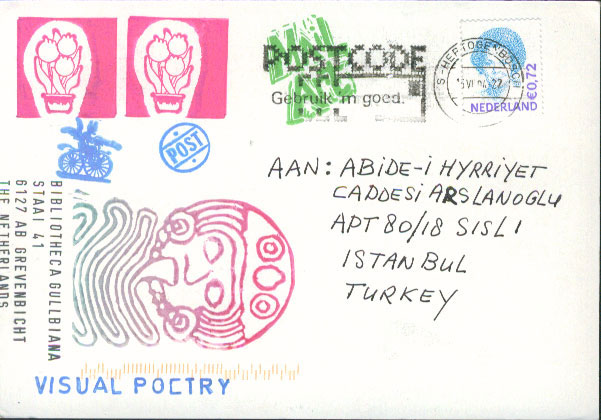 POSTCODE
Gebruik 'm goed.
MAIL
ART
'S-HERTOGENBOSCH
NEDERLAND €0,72
POST
AAN: ABIDE-I HYRRIYET
CADDESI ARSLANOGLU
APT 80/18 SISLI
ISTANBUL
TURKEY
BIBLIOTHECA GULLBIANA
STAAI 41
6127 AB GREVENBICHT
THE NETHERLANDS
VISUAL POETRY